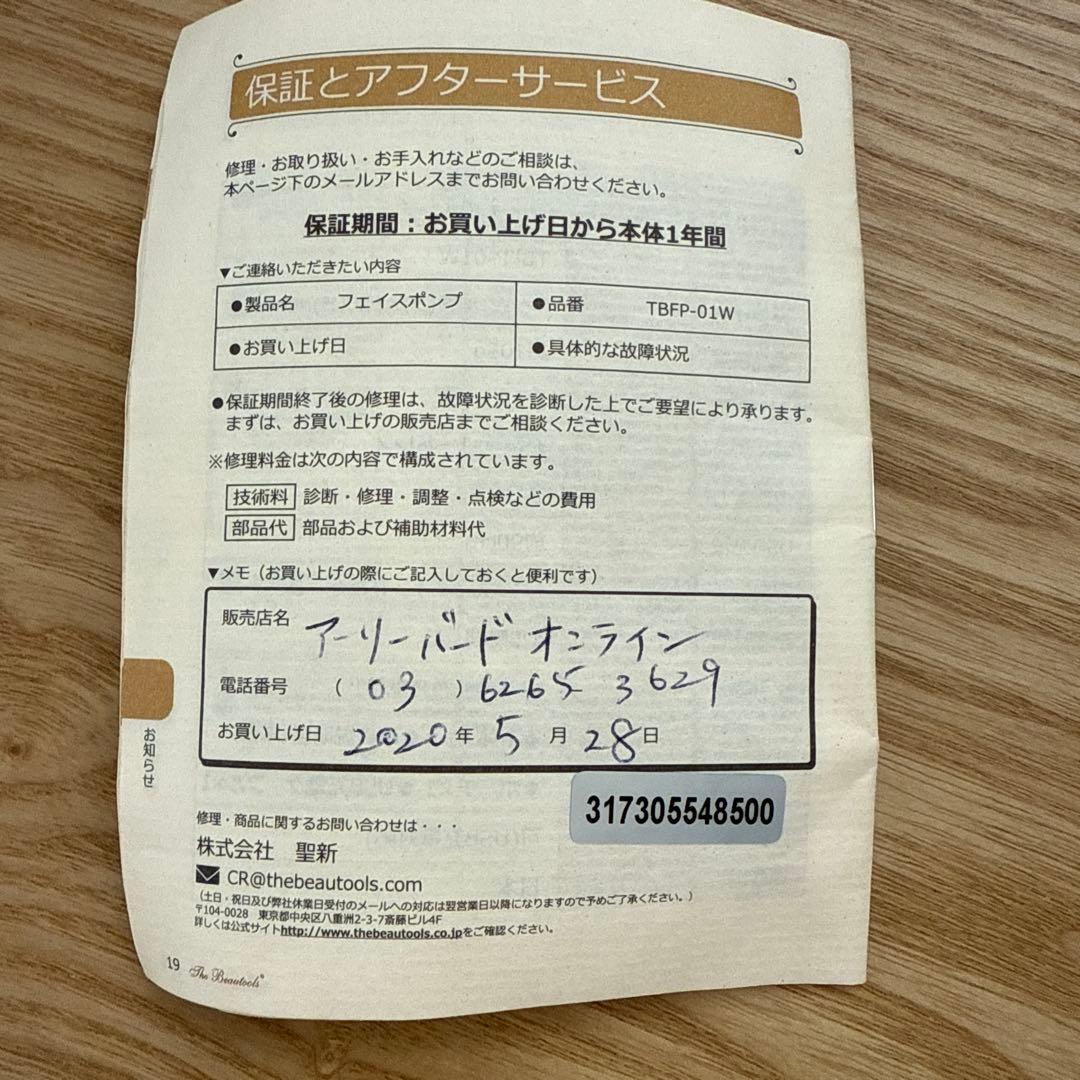 保証とアフターサービス
修理・お取り扱い・お手入れなどのご相談は、
本ページ下のメールアドレスまでお問い合わせください。
保証期間：お買い上げ日から本体1年間
▼ご連絡いただきたい内容
●製品名 フェイスポンプ ●品番 TBFP-01W
●お買い上げ日 ●具体的な故障状況
●保証期間終了後の修理は、故障状況を診断した上でご要望により承ります。
まずは、お買い上げの販売店までご相談ください。
※修理料金は次の内容で構成されています。
技術料 診断・修理・調整・点検などの費用
部品代 部品および補助材料代
▼メモ（お買い上げの際にご記入しておくと便利です）
販売店名 アーリーバードオンライン
電話番号 （ 03 ）6265 3629
お買い上げ日 2020年 5月 28日
317305548500
修理・商品に関するお問い合わせは・・・
株式会社 聖新
CR@thebeautools.com
（土日・祝日及び弊社休業日受付のメールへの対応は翌営業日以降になりますので予めご了承ください。）
〒104-0028 東京都中央区八重洲2-3-7斎藤ビル4F
詳しくは公式サイトhttp://www.thebeautools.co.jpをご確認ください。
お知らせ
19 The Beautools®